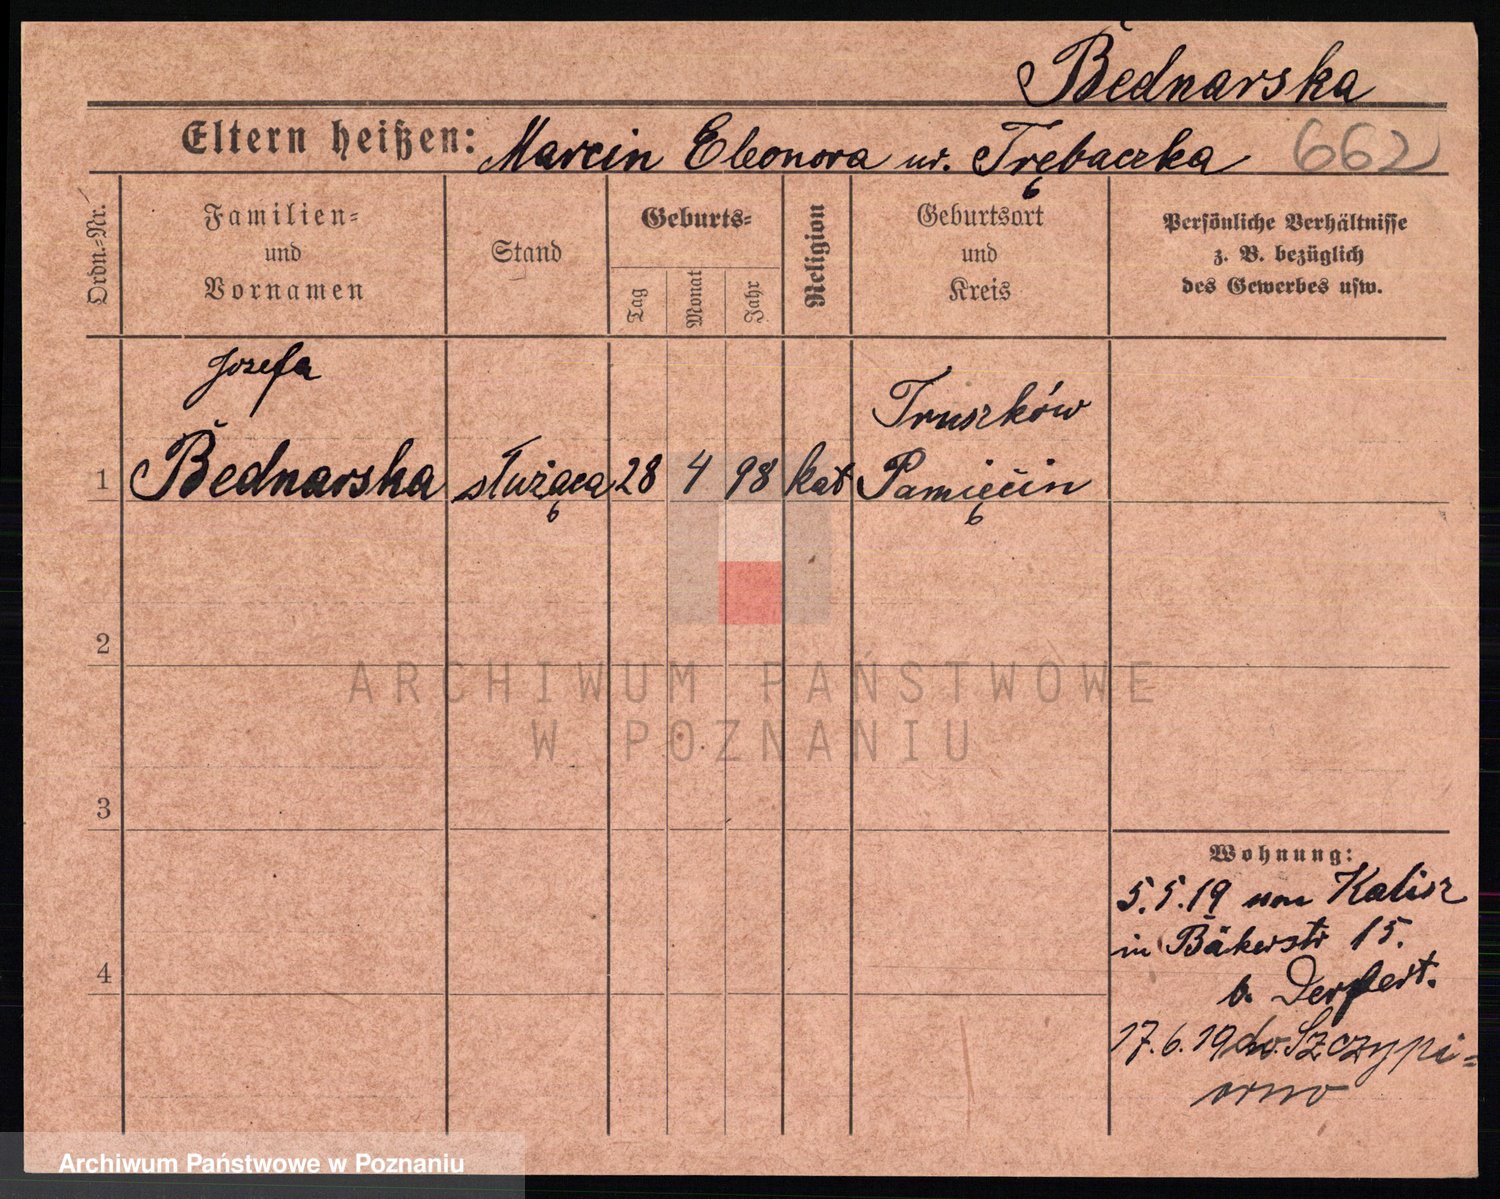 Bednarska
Eltern heißen: Marcin Eleonora ur. Trębaczka 662
Ordn.-Nr.
Familien-
und
Vornamen
Stand
Geburts-
Tag
Monat
Jahr
Religion
Geburtsort
und
Kreis
Persönliche Verhältnisse
z. B. bezüglich
des Gewerbes usw.
Jozefa
Truszków
1 Bednarska służąca 28 4 98 kat Pamięcin
2
3
4
Wohnung:
5.5.19 von Kalisz
in Bäkerstr 15.
b.
17.6.19 do Szczypi=
orno
ARCHIWUM PAŃSTWOWE
W POZNANIU
Archiwum Państwowe w Poznaniu